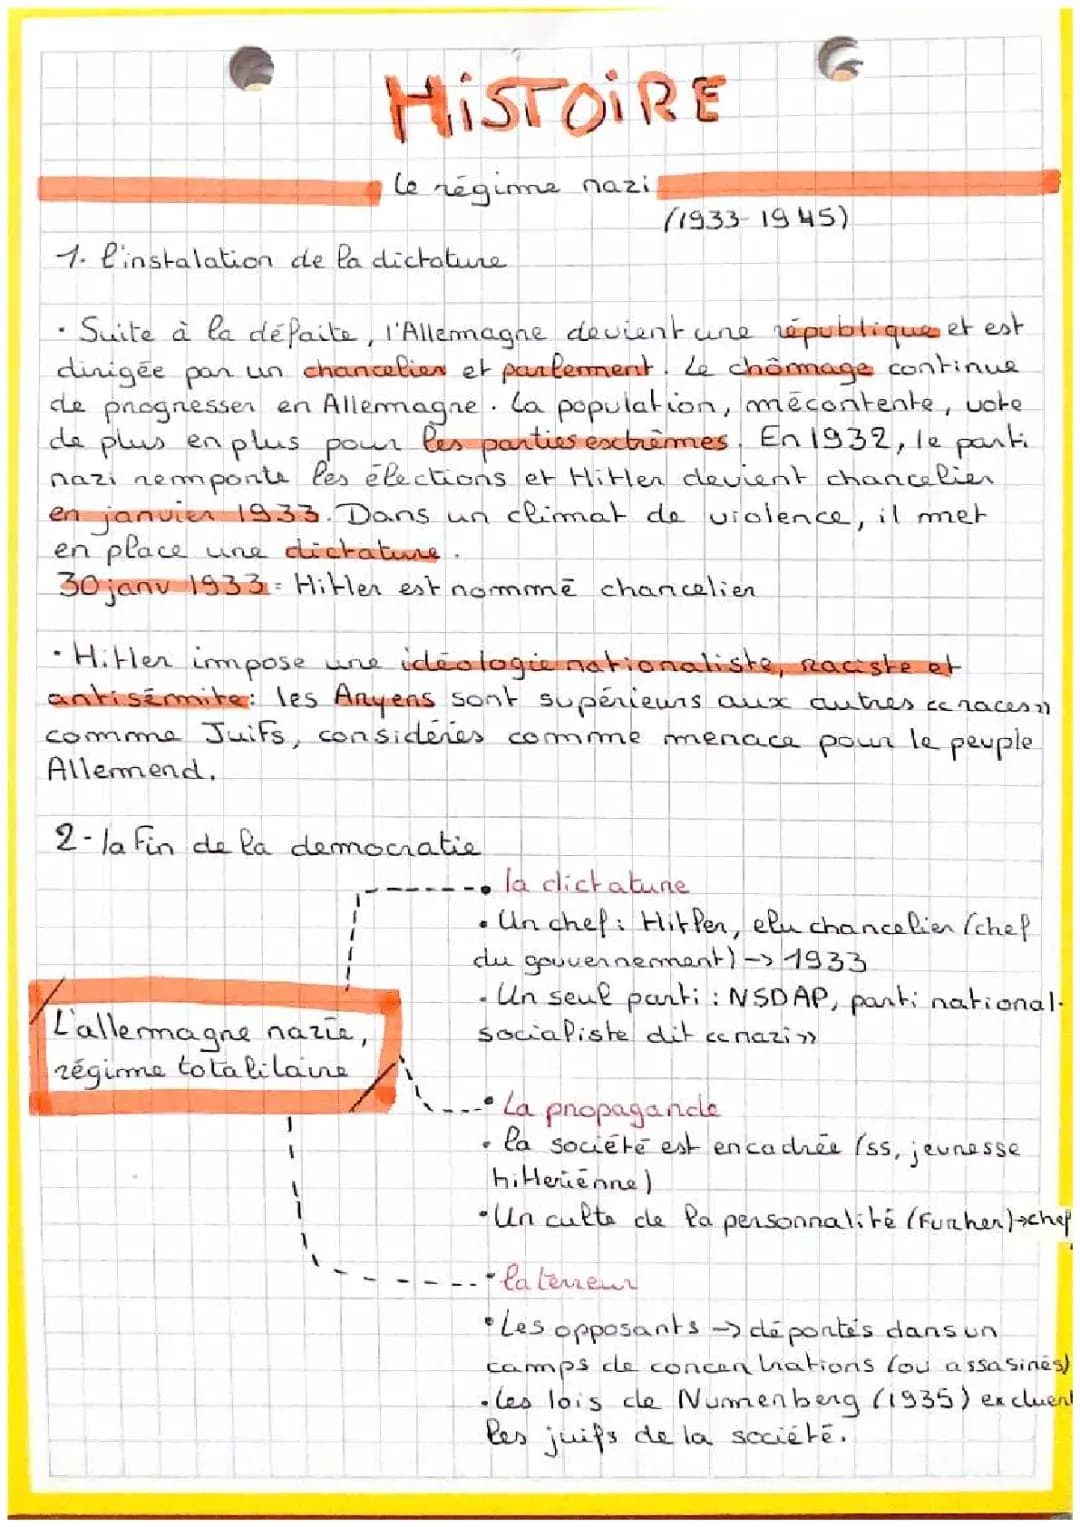 HiSTOiRE
Le régime nazi
(1933-1945)
1. l'instalation de la dictature
· Suite à la défaite, l'Allemagne devient une république et est
dirigée par un chancelier et parlement. Le chômage continue
de progresser en Allemagne. La population, mécontente, vote
de plus en plus pour les parties extrêmes. En 1932, le parti
nazi remporte les élections et Hitler devient chancelier
en janvier 1933. Dans un climat de violence, il met
en place une dictature.
30 janv 1933 = Hitler est nommé chancelier
· Hitler impose une idéologie nationaliste, raciste et
antisémite: les Aryens sont supérieurs aux autres «races»
comme Juifs, considérés comme menace pour le peuple
Allemend.
2- la fin de la democratie
• la dictature
• Un chef : Hitler, elu chancelier (chef
du gouvernement) -> 1933
• Un seul parti : NSDAP, parti national-
socialiste dit «nazi»
L'allemagne nazie,
régime totalilaire
• La propagande
• la société est encadrée (ss, jeunesse
hitleriénne)
• Un culte de la personnalité (Furher)→chef
• la terreur
• Les opposants → déportés dans un
camps de concentrations (ou assasinés)
• Les lois de Nuremberg (1935) excluent
les juifs de la société.